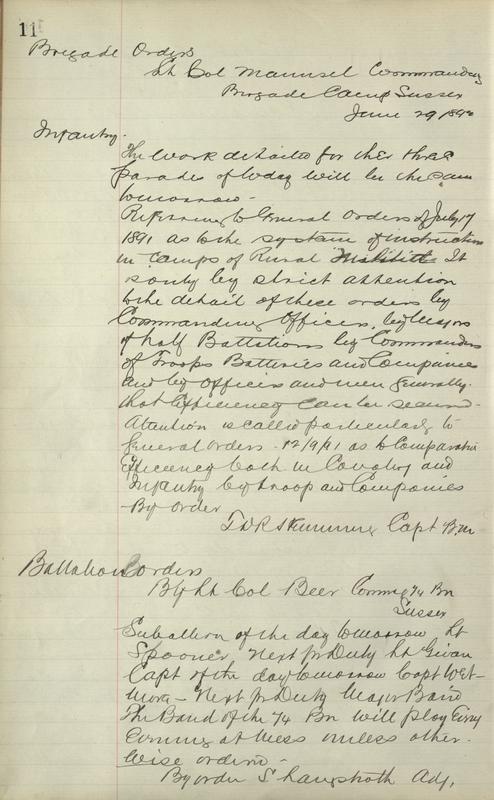 11
Brigade Orders
Lt Col Maunsel Commanding
Brigade Camp Sussex
June 29 189
Infantry.
The work detailed for the three
parades of today will be the same
tomorrow -
Referring to General Orders of July 17
1891 as to the system of instruction
in Camps of Rural It
is only by strict attention
to the detail of these orders by
Commanding Officers, by Majors
of half Battalions by Commanders
of Troops Batteries and Companies
and by Officers and men generally.
that Efficiency can be secured -
Attention is called particularly to
General Orders - 12/9/91 as to Comparative
Efficiency both in Cavalry and
Infantry by troop and Companies
By Order
Capt Bm
Battalion orders
By Lt Col Beer Commg 74 Bn
Sussex
Subaltern of the day tomorrow Lt
Spooner Next pr Duty Lt
Capt of the day tomorrow Capt Wet-
more - Next pr Duty Major Baird
The Band of the 74 Bn will play Every
Evening at Mess unless other-
wise ordered -
By order S Langstroth Adj,